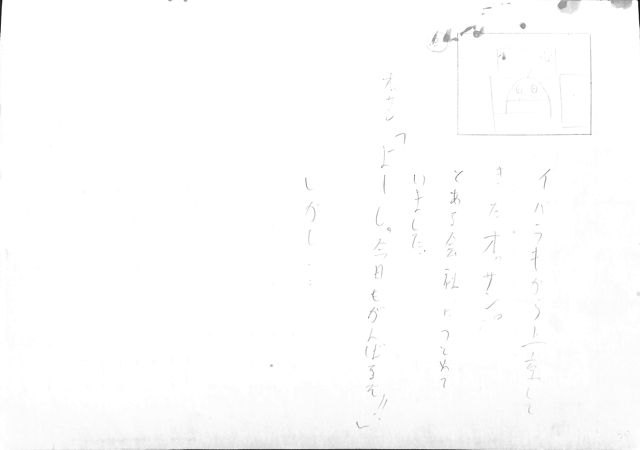 イバラキから上京して
きたオッサン。
とある会社につとめて
いました。
オッサン「よーし。今日もがんばるぞ!!」
しかし……